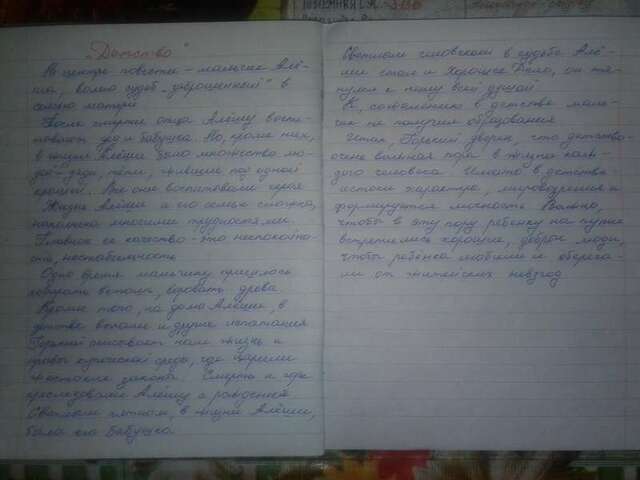 „Детство"
В центре повести – мальчик Алё-
ша, волею судеб „заброшенный" в
семью матери.
После смерти отца Алёшу воспи-
тывали дед и бабушка. Но, кроме них,
в жизни Алёши было множество лю-
дей – дяди, тёти, жившие под одной
крышей. Все они воспитывали героя
Жизнь Алёши и его семьи сложна,
наполнена многими трудностями.
Главное её качество – это неспокойно-
сть, нестабильность
Одно время мальчику пришлось
собирать ветошь, воровать дрова
Кроме того, на долю Алёши, в
детстве выпали и другие испытания
Горький описывает нам жизнь и
нравы купеческой среды, где царили
жестокие законы. Смерть и горе
преследовали Алёшу с
Светлым пятном, в жизни Алёши,
была его бабушка
Светлым человеком в судьбе Алё-
ши стал и Хорошее Дело, он тя-
нулся к нему всей душой.
К сожалению в детстве маль-
чик не получил образования
Итак, Горький уверен, что детство-
очень важная пора в жизни каж-
дого человека. Именно в детстве
истоки характера, мировоззрения и
формируется личность Важно,
чтобы в эту пору ребёнку на пути
встретились хорошие, добрые люди,
чтобы ребёнка любили и оберега-
ли от житейских невзгод